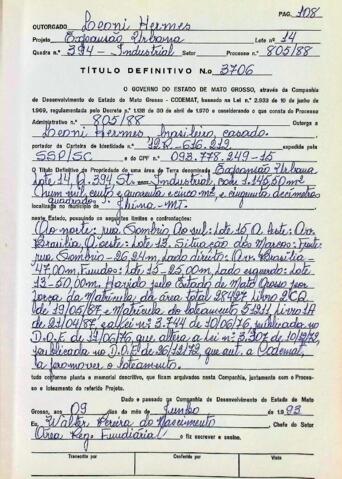 PAG. 108
OUTORGADO Leoni Hermes
Projeto Expansão Urbana Lote n.º 14
Quadra n.º 394 - Industrial Setor Processo n.º 805/88
TÍTULO DEFINITIVO N.o 3706
O GOVERNO DO ESTADO DE MATO GROSSO, através da Companhia
de Desenvolvimento do Estado de Mato Grosso - CODEMAT, baseada na Lei n.º 2.933 de 10 de junho de
1969, regulamentada pelo Decreto n.º 1.138 de 30 de abril de 1970 e considerando o que consta do Processo
Administrativo n.º 805/88 Outorga a
Leoni Hermes, brasileiro, casado.
portador da Carteira de Identidade n.º 12.R-616.212 expedida pela
SSP/SC e do CPF n.º 093.778.249-15
O Título Definitivo de Propriedade de uma área de Terra denominada Expansão Urbana
Lote 14 Q. 394 St. Industrial, com 1.145,50 m²
(hum mil, cento e quarenta e cinco m², e cinquenta decímetros
quadrados).
localizada no município de Sinop-MT.
neste Estado, possuindo os seguintes limites e confrontações:
Ao norte: rua Sombrio Ao sul: Lote 15 A Leste: Av.
Brasília, A oeste: Lote 13. Situação dos Marcos: Frente:
rua Sombrio - 26,24m, Lado direito: Av. Brasília -
47,00m. Fundos: Lote 15 - 25,00m, Lado esquerdo: Lote
13 - 50,00m. Havido pelo Estado de Mato Grosso por
força da Matrícula da área total 28427 Livro 2CQ
de 19/05/87 e Matrícula do loteamento 51211 Livro 1A
de 21/04/87 e a lei nº 3.744 de 10/06/76, publicada no
D.O.E. de 11/06/76 que altera a lei nº 3.307 de
publicada no D.O.E. de 26/12/72, que aut. a Codemat,
a promover o loteamento.
tudo conforme planta e memorial descritivo, que ficam arquivados nesta Companhia, juntamente com o Processo
e loteamento do referido Projeto.
Dado e passado na Companhia de Desenvolvimento do Estado de Mato
Grosso, aos 09 dias do mês de Junho de 1.993
Eu, Walter Pereira do Nascimento Chefe do Setor
Área Reg. Fundiária o fiz escrever e assino.
Transcrito por Conferido por Visto